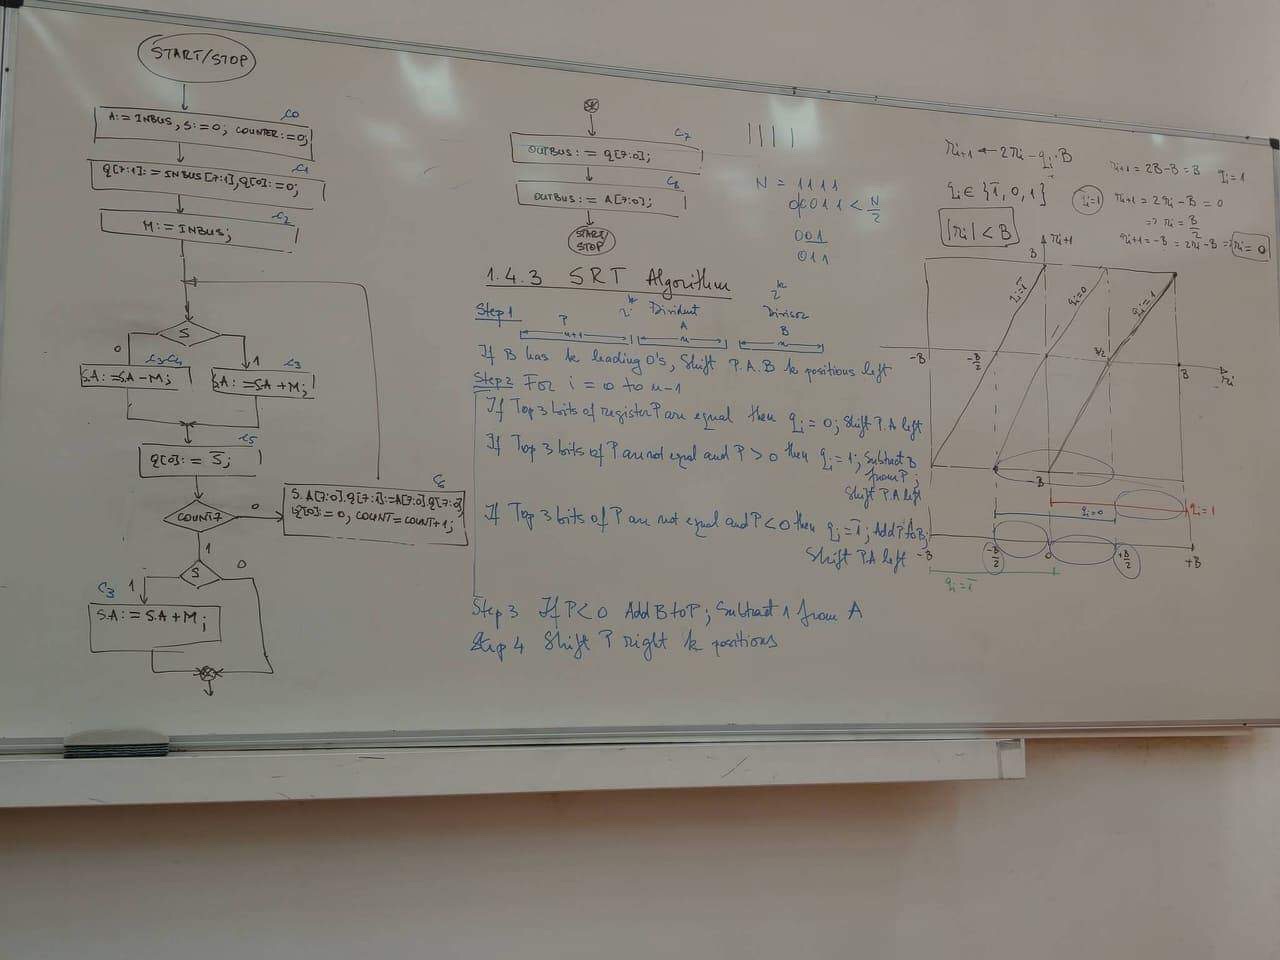 START/STOP
C0
A:= INBUS, S:=0; COUNTER:=0;
C1
Q[7:1]:= INBUS[7:1], Q[0]:=0;
C2
M:= INBUS;
S
0
1
C3C4
S.A:=S.A-M;
C3
S.A:=S.A+M;
C5
Q[0]:= S̅;
COUNT7
0
1
S.A[7:0].Q[7:1]:=A[7:0].Q[7:0]
Q[0]:=0, COUNT=COUNT+1;
S
1
0
C3
S.A:= S.A+M;
C7
OUTBUS:= Q[7:0];
C8
OUTBUS:= A[7:0];
START/
STOP
N = 1111
00011 < N/2
001
011
1.4.3 SRT Algorithm
Step 1
P
n+1
Divident
A
n
2^k
Divisor
B
n
If B has k leading 0's, Shift P.A.B k positions left
Step 2 For i = 0 to n-1
If Top 3 bits of register P are equal then qi = 0; Shift P.A left
If Top 3 bits of P are not equal and P > 0 then qi = 1; Subtract B
from P;
Shift P.A left
If Top 3 bits of P are not equal and P < 0 then qi = 1̅; Add P to B;
Shift P.A left
Step 3 If P<0 Add B to P; Subtract 1 from A
Step 4 Shift P right k positions
ri+1 ← 2ri - qi·B
qi ∈ {1̅, 0, 1}
|ri| < B
ri+1 = 2B-B = B qi=1
qi=1 ri+1 = 2ri - B = 0
=> ri = B/2
ri+1 = -B = 2ri-B => ri = 0
B
ri+1
qi=1̅
qi=0
qi=1
-B
-B/2
B/2
B
ri
-B
qi=1
qi=0
-B
-B/2
0
+B/2
+B
qi=1̅